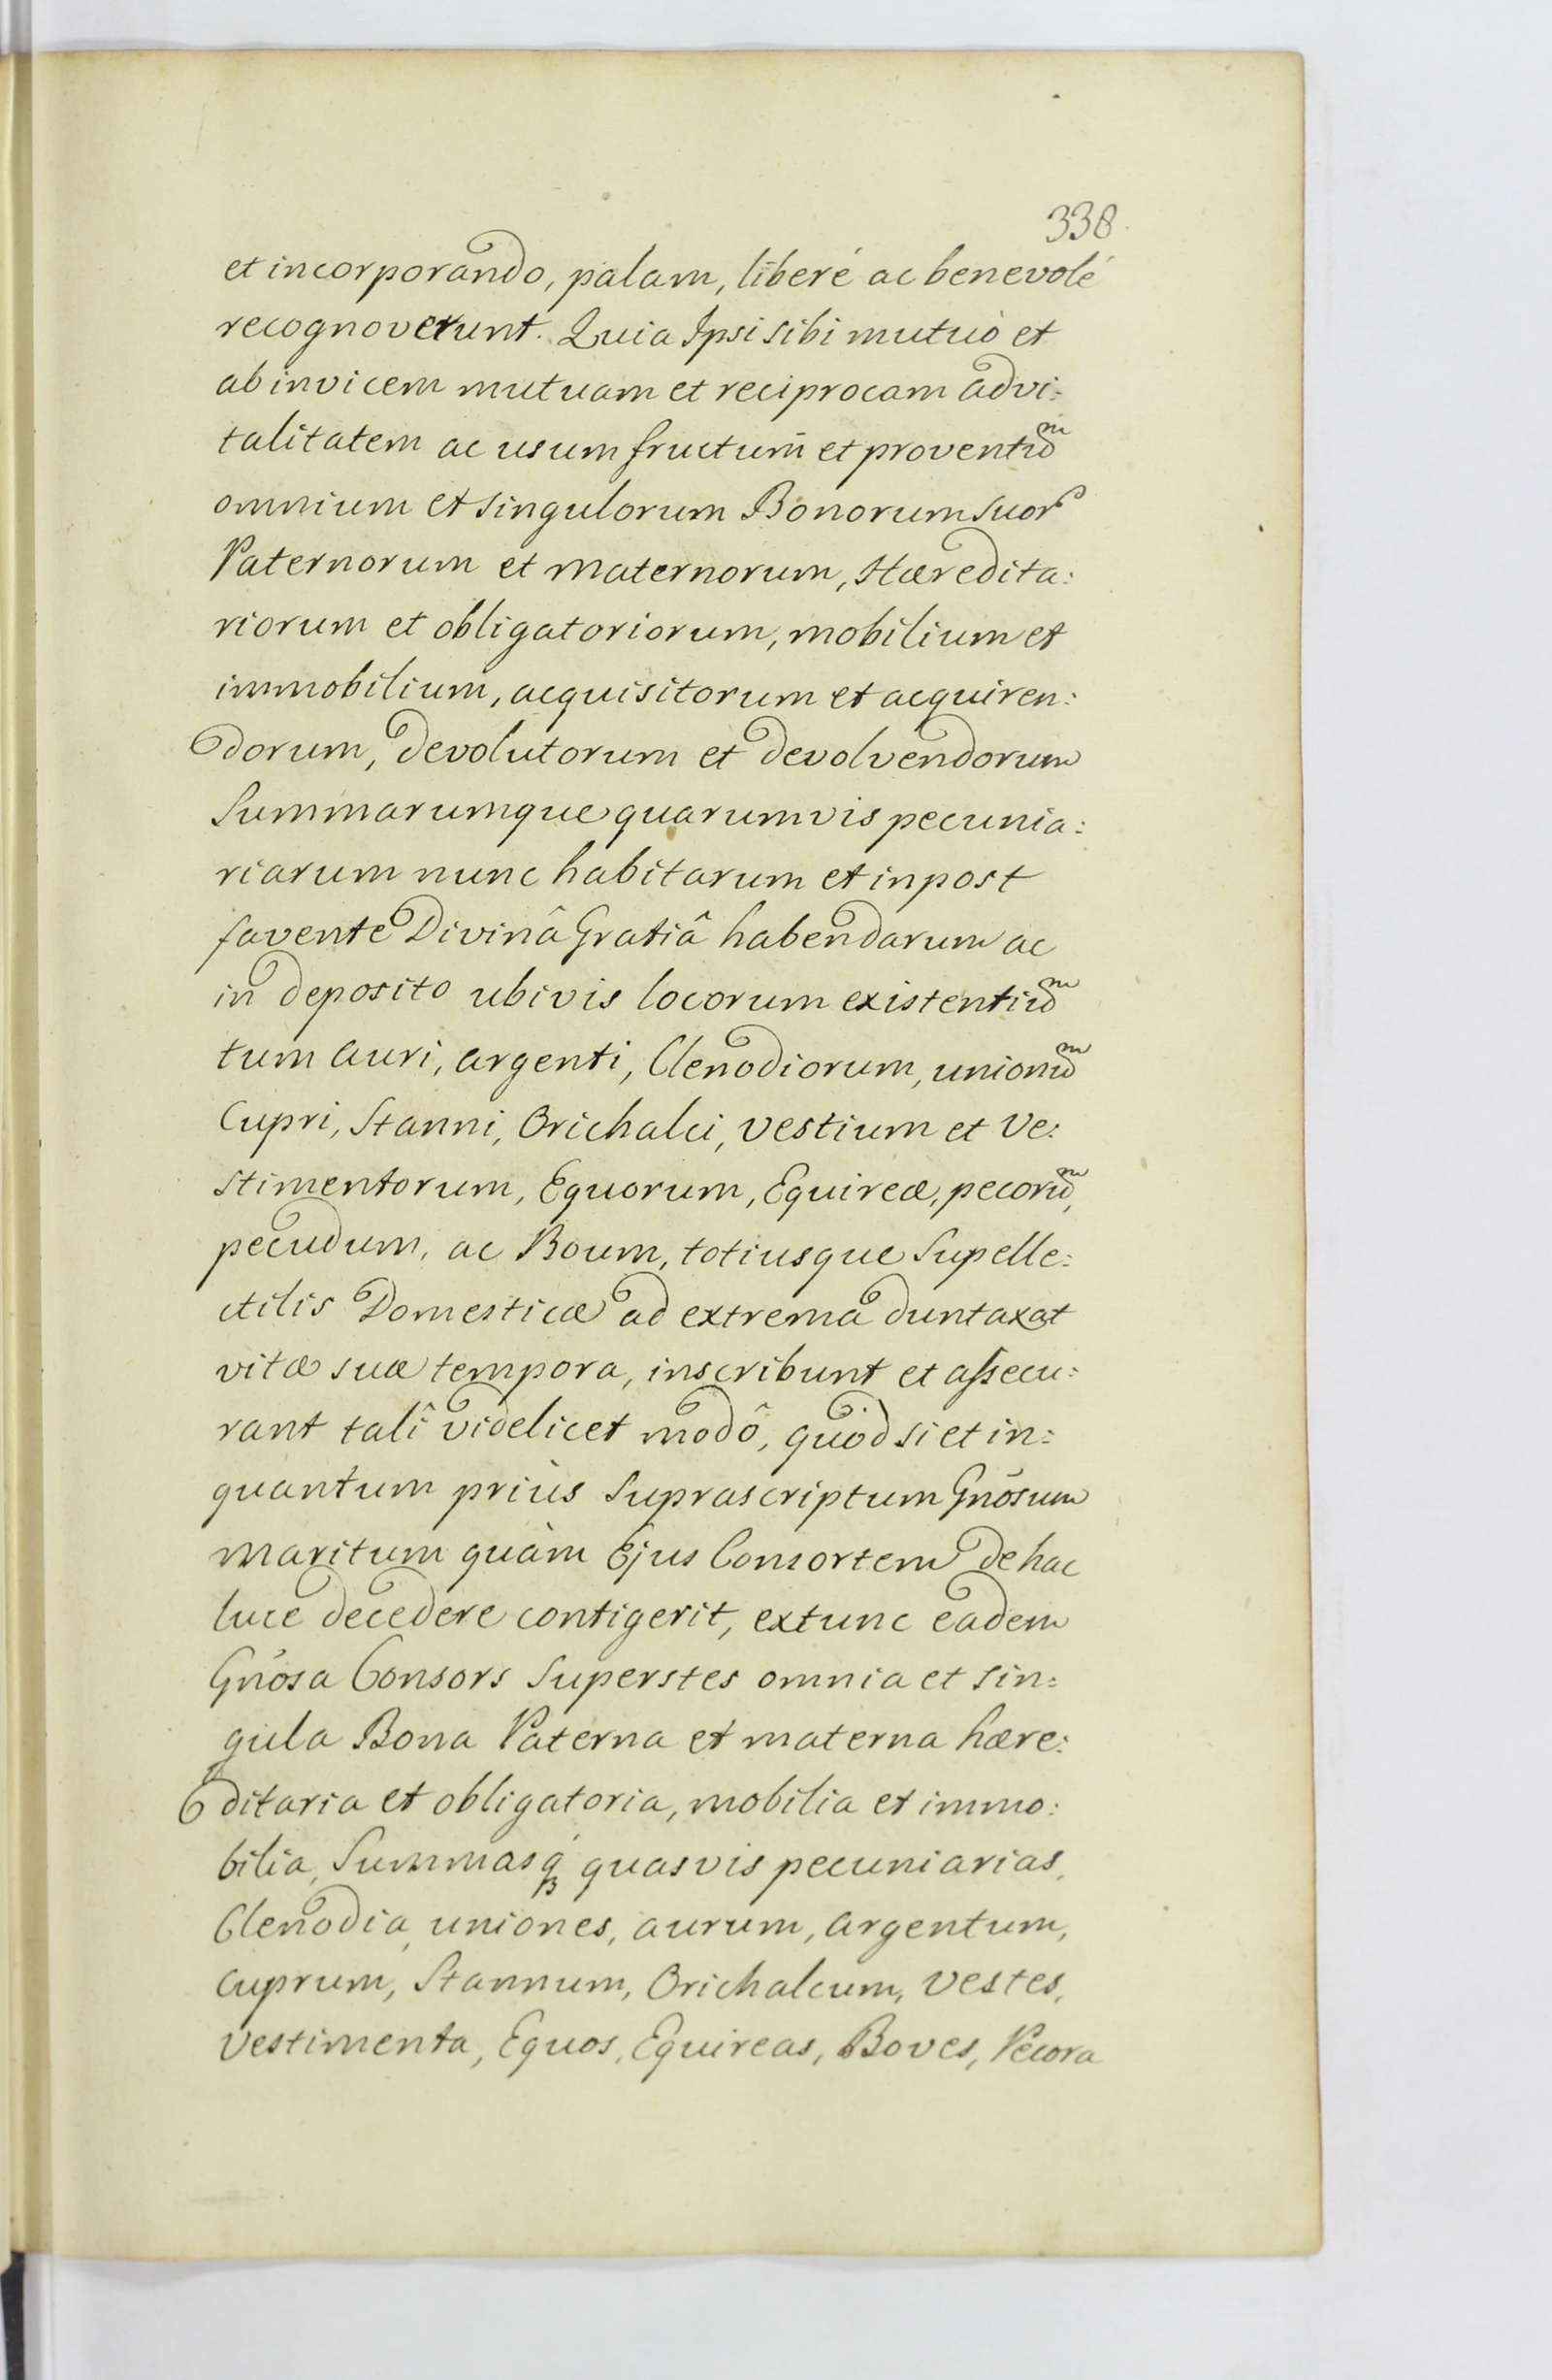 338.
et incorporando, palam, liberé ac benevolé
recognoverunt. Quia Ipsi sibi mutuò et
ab invicem mutuam et reciprocam advi:
talitatem ac usum fructum̄ et proventuᵐ
omnium et singulorum Bonorum suor
Paternorum et maternorum, Hæredita:
riorum et obligatoriorum, mobilium et
immobilium, acquisitorum et acquiren:
dorum, devolutorum et devolvendorum
Summarumque quarumvis pecunia:
riarum nunc habitarum et inpost
favente Divinâ Gratiâ habendarum ac
in deposito ubivis locorum existentiuᵐ
tum auri, argenti, Clenodiorum, unionuᵐ
Cupri, Stanni, Orichalci, vestium et Ve:
stimentorum, Equorum, Equireæ, pecoruᵐ,
pecudum, ac Boum, totiusque Supelle:
ctilis Domesticæ ad extrema duntaxat
vitæ suæ tempora, inscribunt et assecu:
rant talî videlicet modô, quòd si et in:
quantum priùs Suprascriptum Gnōsum
Maritum quàm Ejus Consortem de hac
luce decedere contigerit, extunc eadem
Gnōsa Consors Superstes omnia et sin:
gula Bona Paterna et materna hære:
ditaria et obligatoria, mobilia et immo:
bilia, Summasq́ʒ quasvis pecuniarias,
Clenodia, uniones, aurum, argentum,
cuprum, Stannum, Orichalcum, vestes,
vestimenta, Equos, Equireas, Boves, Pecora